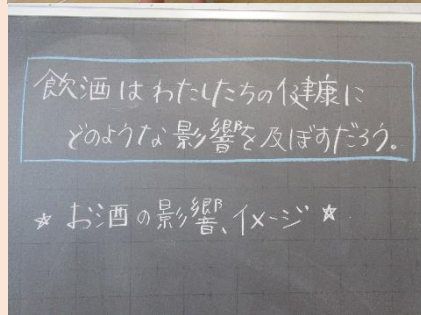 飲酒はわたしたちの健康に
どのような影響を及ぼすだろう。
☆ お酒の影響、イメージ ☆